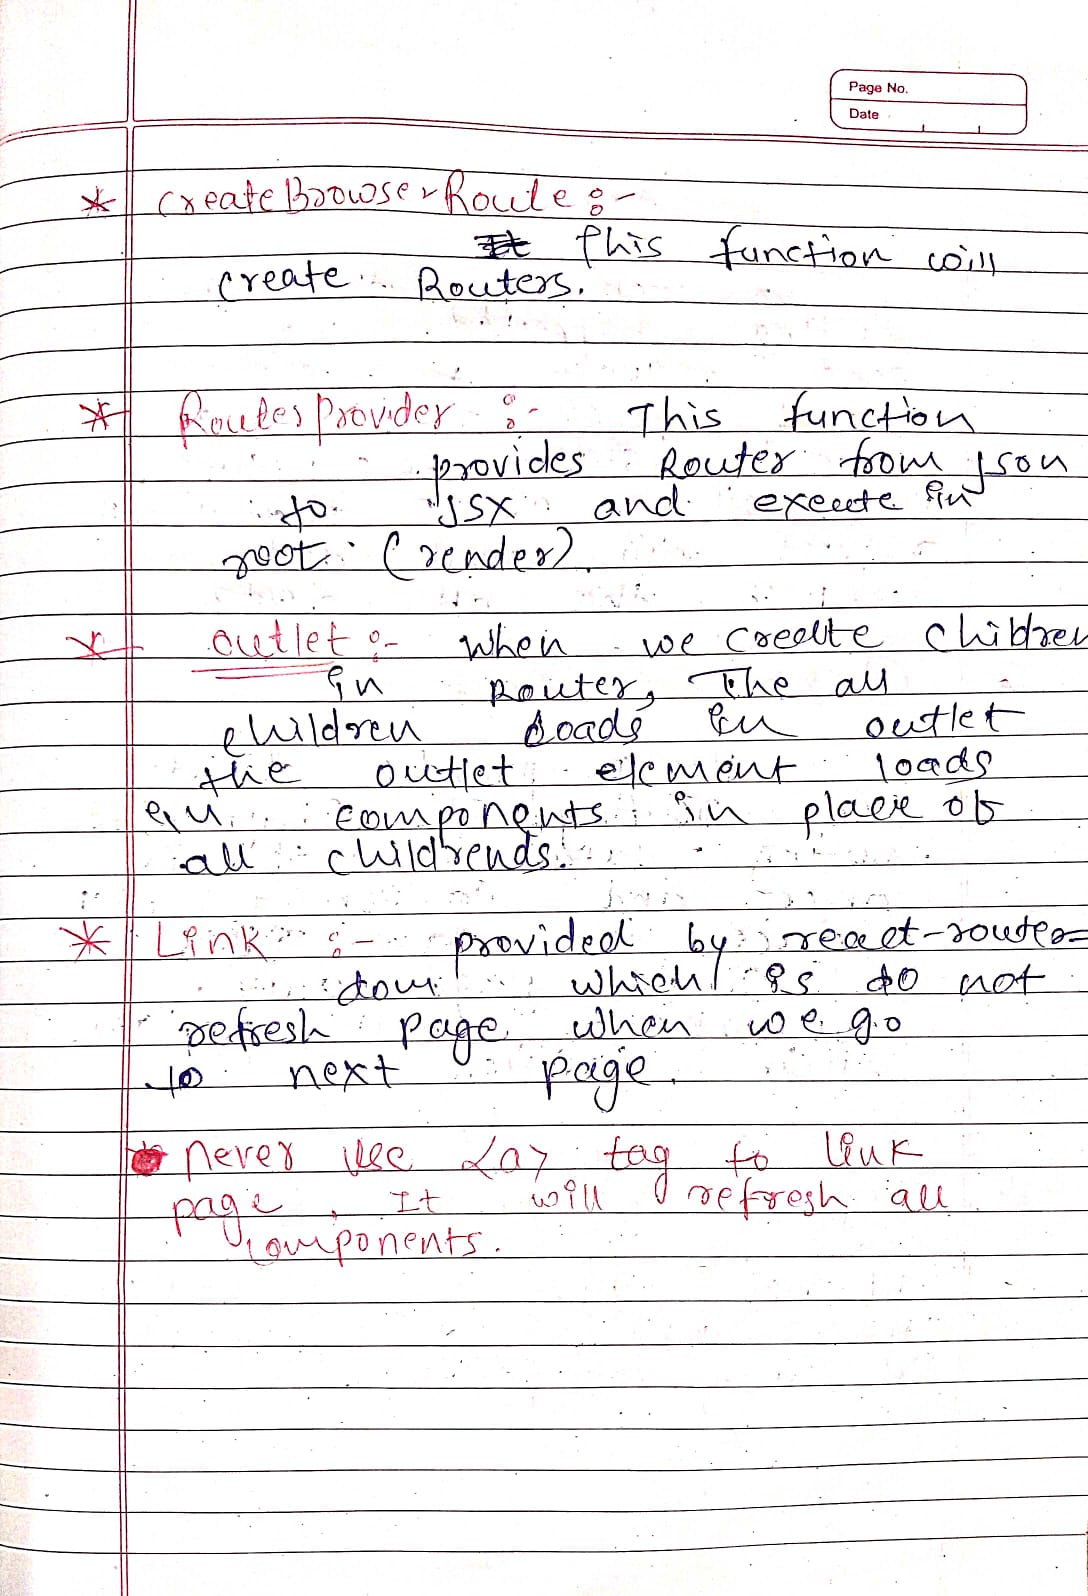 Page No.
Date
* CreateBrowserRoute :-
It This function will
create Routers.
* RoutesProvider :- This function
provides Router from json
to JSX and execute in
root (render).
* Outlet :- When we create children
in Router, The all
children loads in outlet
the outlet element loads
in components in place of
all childrends.
* Link :- provided by react-router-
dom which is do not
refresh page when we go
to next page.
never use <a> tag to link
page, It will refresh all
components.